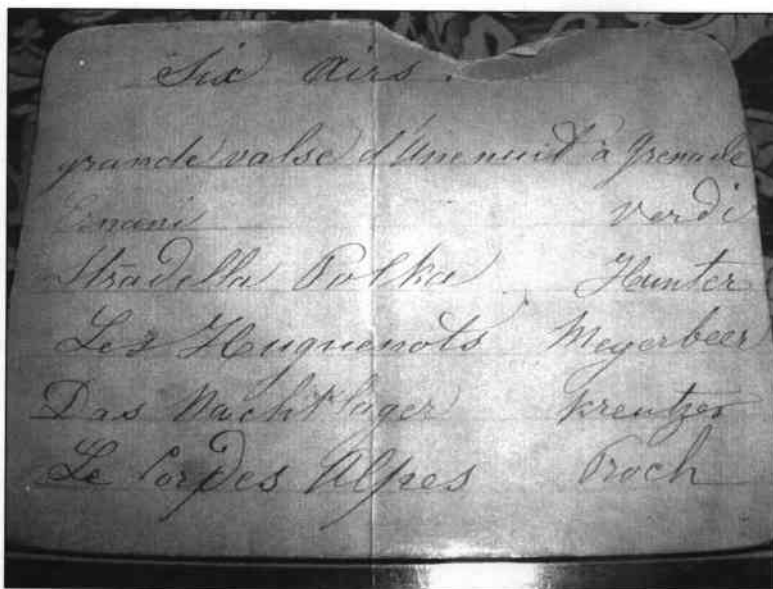 Six Airs.
grande valse d'Une nuit à Grenade
Ernani Verdi
Stradella Polka Hunter
Les Huguenots Meyerbeer
Das Nachtlager Kreutzer
Le Cor des Alpes Proch